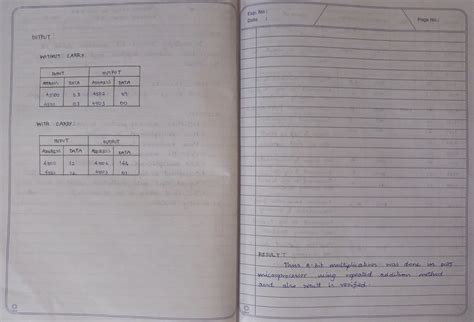 OUTPUT
WITHOUT CARRY:
INPUT OUTPUT
ADDRESS DATA ADDRESS DATA
4500 4502
4501 03 4503 00
WITH CARRY:
INPUT OUTPUT
ADDRESS DATA ADDRESS DATA
4500 12 4502 144
4501 12 4503
Exp. No :
Date :
Page No.:
RESULT:
Thus 8-bit multiplication was done on 8085
microprocessor using repeated addition method
and also result is verified.